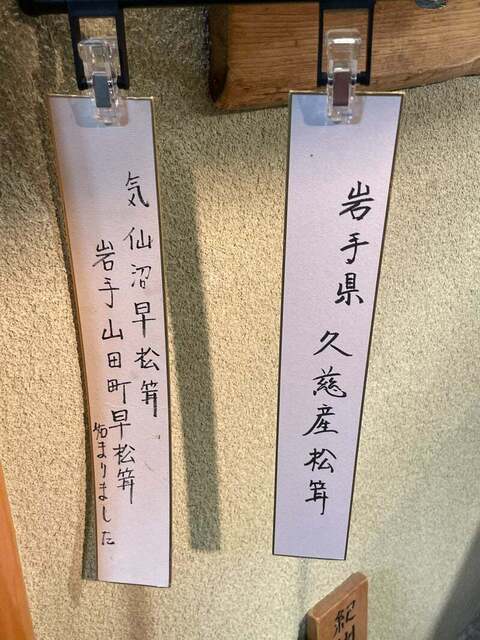 岩手県 久慈産松茸
気仙沼早松茸
岩手山田町早松茸
始まりました
紀州